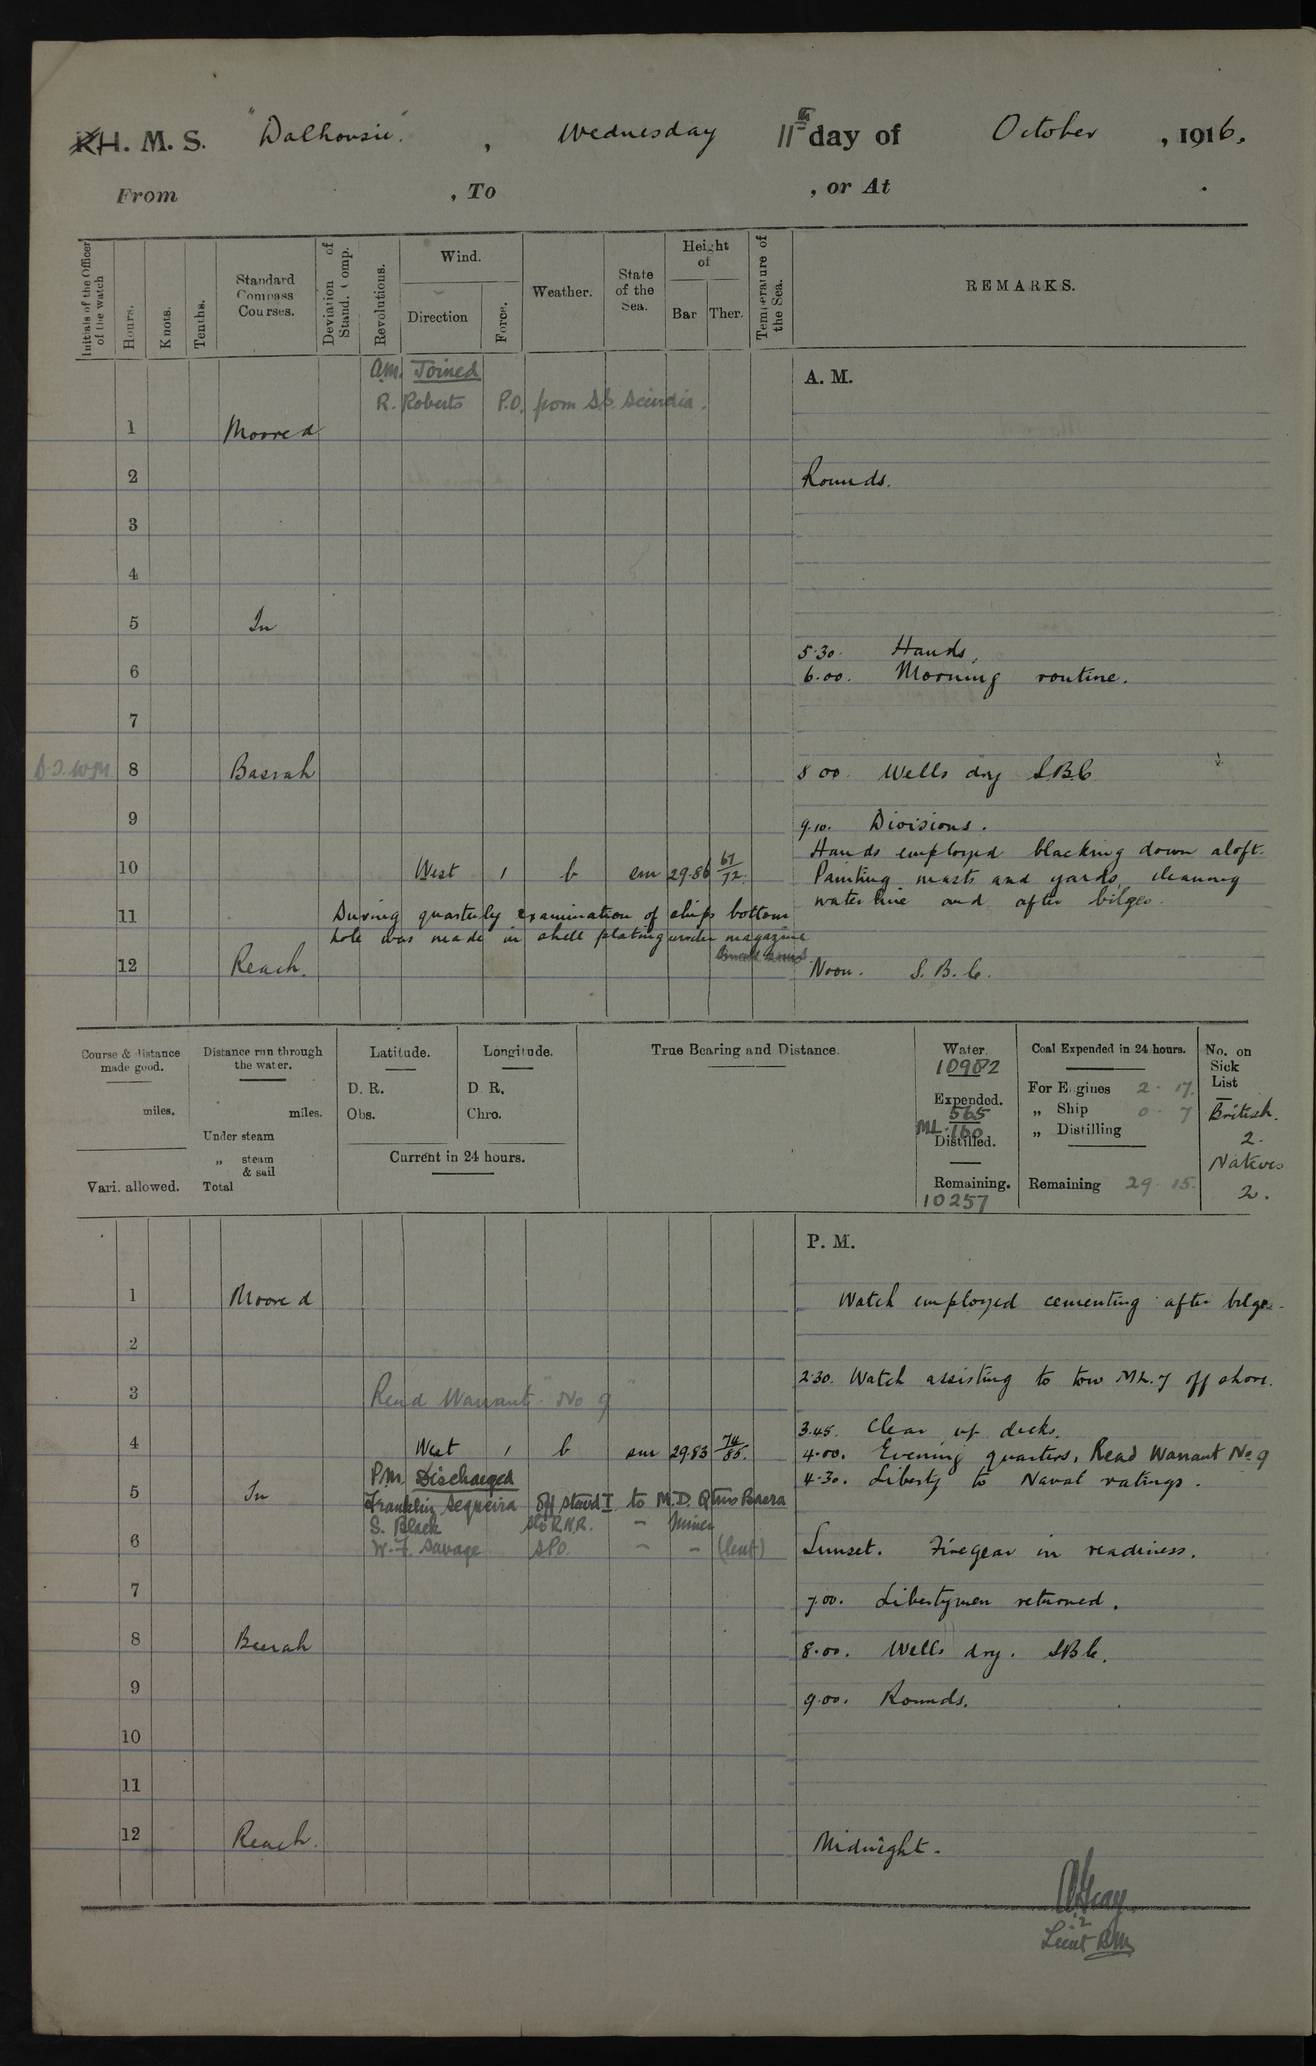 H. M. S. "Dalhousie", Wednesday 11th day of October, 1916.
From , To , or At .
Initials of the Officer of the watch
Hours.
Knots.
Tenths.
Standard Compass Courses.
Deviation of Stand. Comp.
Revolutions.
Wind.
Direction
Force.
Weather.
State of the Sea.
Height of
Bar Ther.
Temperature of the Sea.
REMARKS.
A.M. Joined
A. M.
R. Roberts P.O. from S.S. Scindia.
1 Moored
2 Rounds.
3
4
5 In
5.30. Hands.
6 6.00. Morning routine.
7
8 Basrah 8 00. Wells dry SBC
9 9.10. Divisions.
Hands employed blacking down aloft.
10 West 1 b sm 29.86 67/72. Painting masts and yards, cleaning
water line and after bilges.
11 During quarterly examination of ships bottom
hole was made in shell plating under magazine
12 Reach. Noon. S. B. C.
Course & distance made good.
miles.
Vari. allowed.
Distance run through the water.
miles.
Under steam
„ steam & sail
Total
Latitude.
D. R.
Obs.
Longitude.
D. R.
Chro.
Current in 24 hours.
True Bearing and Distance.
Water.
10982
Expended.
565
ML. 160
Distilled.
Remaining.
10257
Coal Expended in 24 hours.
For Engines 2 . 17.
„ Ship 0 . 7
„ Distilling
Remaining 29 . 15.
No. on Sick List
British.
2.
Natives
2.
P. M.
1 Moored Watch employed cementing after bilges.
2
2.30. Watch assisting to tow ML. 7 off shore.
3 Read Warrant "No 9"
3.45. Clear up decks.
4 West 1 b sm 29.83 74/85. 4.00. Evening quarters, Read Warrant No 9
P.M. Discharged 4.30. Liberty to Naval ratings.
5 In
Franklin Sequeira Off Stewd I to M.D. Qtrs Basra
S. Black Sto R.N.R. - Miner
6 W. F. Savage SPO. - - (lent) Sunset. Fire gear in readiness.
7 7.00. Libertymen returned.
8 Basrah 8.00. Wells dry. SBC.
9 9.00. Rounds.
10
11
12 Reach. Midnight.
Lieut RIM